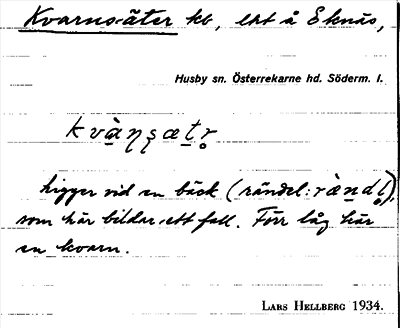 Kvarnsäter kb, ert å Eknäs,
Husby sn. Österrekarne hd. Söderm. l.
kvàṇṣætr̥
ligger vid en bäck (rändel: rændl̥),
som här bildar ett fall. Förr låg här
en kvarn.
LARS HELLBERG 1934.